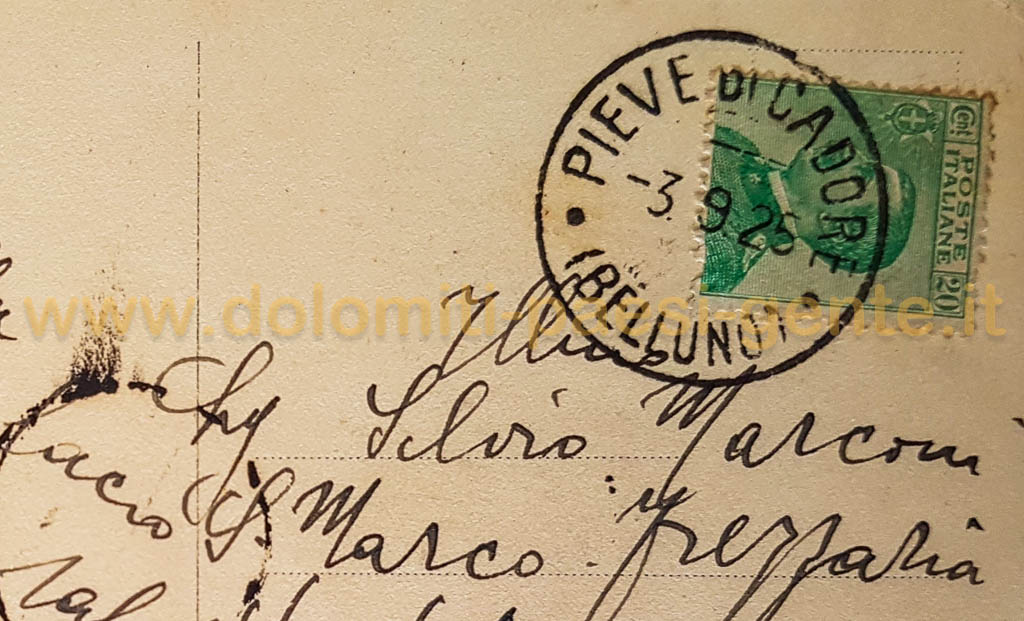 PIEVE DI CADORE
3.9.25
(BELLUNO)
Cent.
POSTE
ITALIANE
20
www.dolomiti-paesi-gente.it
Illmo
Sig Silvio Marconi
S. Marco. Frezzaria